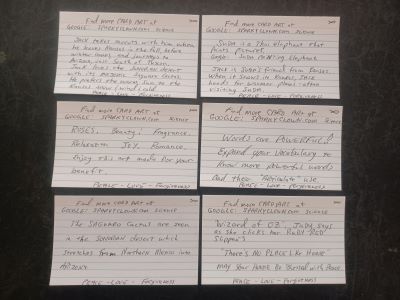 Find more CARD ART at
GOOGLE: SPARKYCLOWN.com SCIENCE
JACK takes
with him when
he leaves Kansas in the Fall, before
winter
and journeys to
Arizona, just South of
JACK loves the
desert
with its
Saguaro Cactus.
He
the
from the
Kansas snow / wind / cold
PEACE - LOVE - FORGIVENESS
Find more CARD ART at
GOOGLE: SPARKYCLOWN.com SCIENCE
SUDA is a Thai elephant that
paints pictures
Google: SUDA PAINTING Elephant
JACK is SUDA's friend from Kansas.
When it snows in Kansas, JACK
heads for warmer places - often
visiting SUDA
PEACE - LOVE - FORGIVENESS
Find more CARD ART at
GOOGLE: SPARKYCLOWN.com SCIENCE
ROSES. Beauty! Fragrance.
Relaxation Joy. Romance.
Enjoy this art made for your
benefit.
PEACE - LOVE - Forgiveness
Find more CARD ART at
GOOGLE: SPARKYCLOWN.com SCIENCE
Words are POWERFUL!
Expand your Vocabulary to
Know more powerful words
And these "Articulate" use.
PEACE - LOVE - Forgiveness
Find more CARD ART at
GOOGLE: SPARKYCLOWN.com SCIENCE
The SAGUARO Cactus are seen
in the SONORAN desert which
stretches from Northern Mexico into
ARIZONA
PEACE - LOVE - Forgiveness
Find more CARD ART at
GOOGLE: SPARKYCLOWN.com SCIENCE
"Wizard of OZ". Judy says
as she clicks her RUBY RED
Slippers
"There's NO PLACE Like HOME
May Your HOME Be Blessed with Peace
PEACE - LOVE - FORGIVENESS